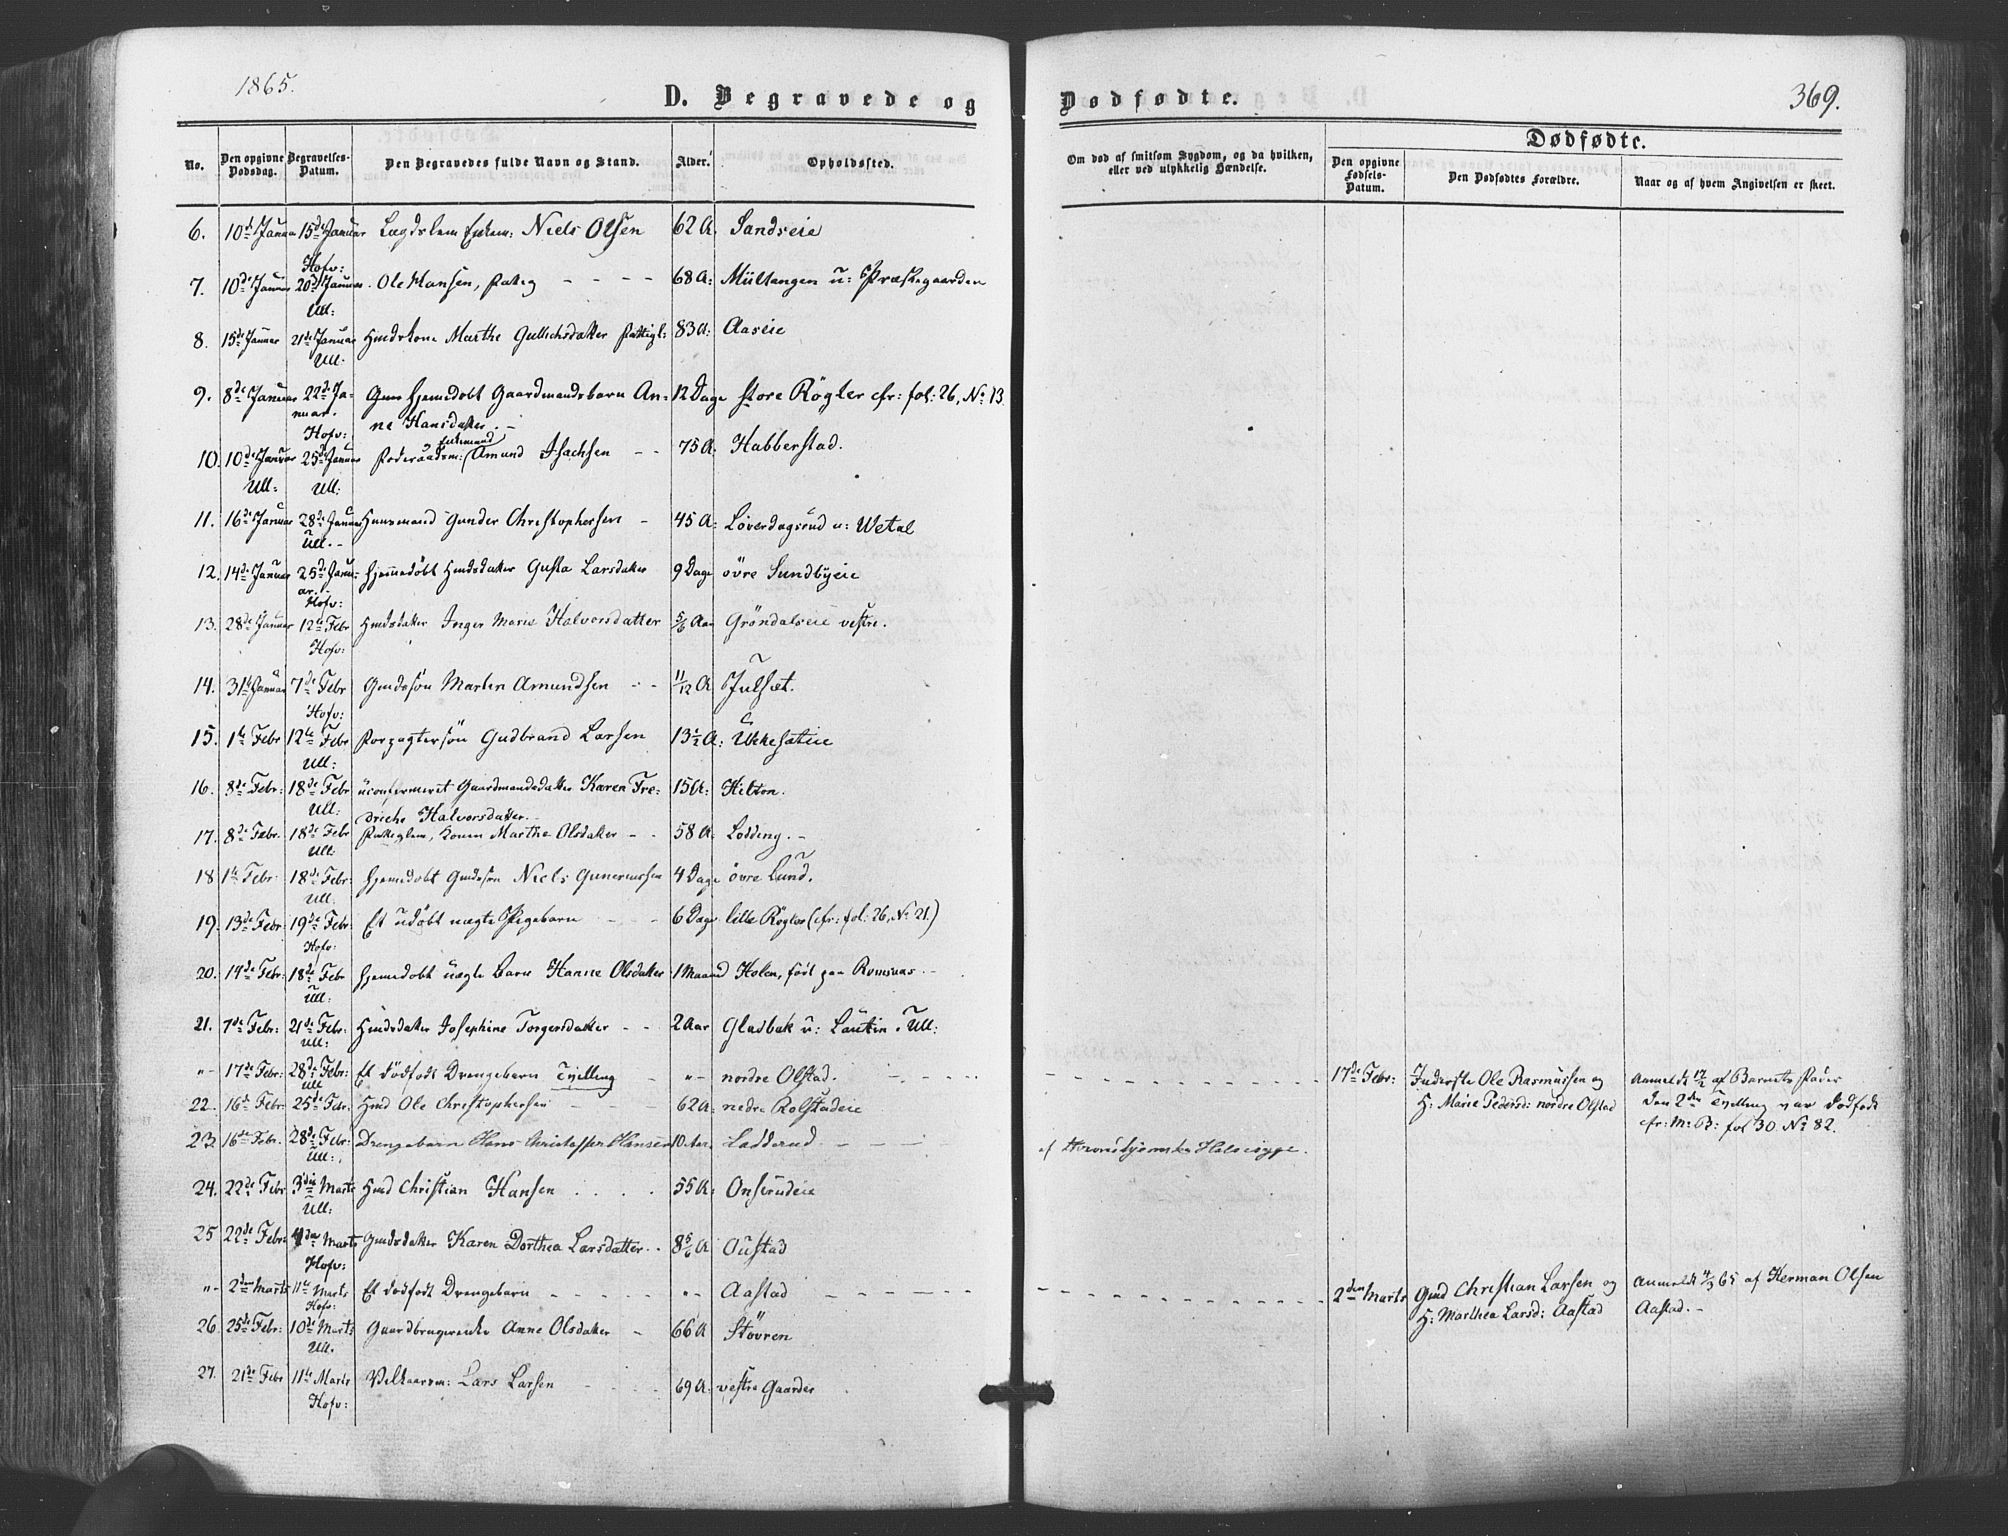 1865.
D. Begravede og
Dødfødte.
369.
No.
Den opgivne Dødsdag.
Begravelses-Datum.
Den Begravedes fulde Navn og Stand.
Alder.
Opholdssted.
Om død af smitsom Sygdom, og da hvilken, eller ved ulykkelig Hændelse.
Dødfødte.
Den opgivne Fødsels-Datum.
Den Dødfødtes Forældre.
Naar og af hvem Angivelsen er skeet.
6. 10de Januar 15de Januar Lægdslem Enkem: Niels Olsen 62 A. Sandseie
Hofv:
7. 10de Januar 20de Januar Ole Hansen, fattig 68 A: Myltangen u: Præstegaarden
Ull:
8. 15de Januar 21de Januar Hmdskone Marthe Gullichsdatter 83 A: Aaseie
Ull.
9. 8de Januar 22de Ja- hjemedøbt Gaardmandsbarn An- 12 Dage store Rögler cfr: fol: 26, No 13.
nuar. ne Hansdatter. -
Hofv: Enkemand
10. 10de Januar 25de Januar Foderaadsm: Amund Isachsen 75 A. Habberstad.
Ull: Ull:
11. 16de Januar 28de Januar Huusmand Gunder Christophersen 45 A: Löverdagsrud u: Wetal
Ull. -
12. 14de Januar 25de Janu- hjemmedöbt Hmdsdatter Gusta Larsdatter 9 Dage övre Sundbyeie
ar.
Hofv:
13. 28de Januar 12te Febr Hmdsdatter Inger Marie Halvorsdatter 5/6 Aar Gröndalseie vestre.
Hofv:
14. 31te Januar 7de Febr Gmdssön Martin Amundsen 11/12 A Julset.
Hofv:
15. 1te Febr 12te Febr Forpagtersön Gudbrand Larsen 13 1/2 A:
Ull:
16. 8de Febr: 18de Febr uconfirmeret Gaardmandsdatter Karen Fre- 15 A: Hilton.
Ull: driche Halvorsdatter. -
17. 8de Febr: 18de Febr Fattiglem, Konen Marthe Olsdatter 58 A: Lodding. -
Ull:
18 1te Febr 18de Febr: hjemedobt Gmdssön Niels Guneriussen 4 Dage övre Lund.
Ull.
19. 13de Febr: 19de Febr: Et udöbt uægte Pigebarn 6 Dage lille Rögler (cfr: fol: 26, No 21.)
Hofv:
20. 14de Febr: 18de Febr hjemedobt uægte Barn Hanne Olsdatter 1 Maaned Holen, född paa Romsaas. -
Ull:
21. 7de Febr: 21de Febr: Hmdsdatter Josephine Torgersdatter 2 Aar Gladbak u: Lautin. Ull:
Ull:
"- 17de Febr: 28de Febr: Et dödfödt Drengebarn Tvilling "- nordre Olstad. 17de Febr: Inderste Ole Rasmussen og Anmeldt 17/2 af Barnets Fader
Ull H: Marie Pedersd: nordre Olstad Den 2den Tvilling var dödfödt
22. 16de Febr 25de Febr. Hmd Ole Christophersen 62 A: nedre Rolstadeie cfr: M. B: fol 30 No 82.
23. 16de Febr. 28de Febr: Drengebarn Hans Christoffer Hansen 10 Aar. Ladderud af Halssyge.
Ull:
24. 22de Febr 3die Marts Hmd Christian Hansen 55 A: Onsrudeie
Ull:
25 22de Febr: 4de Marts Gmdsdatter Karen Dorthea Larsdatter 8 5/6 A Oustad
Hofv:
"- 2den Marts 11te Marts Et dödfödt Drengebarn "- Aastad 2den Marts Gmd Christian Larsen og Anmeldt 4/3 65 af Herman Olsen
Hofv: H: Marthea Larsd: Aastad Aastad. -
26 25de Febr: 10de Marts Gaardbrugerenke Anne Olsdatter 66 A Stövren
Ull.
27. 21de Febr 11te Marts Vilkaarsm: Lars Larsen 69 A: vestre Gaarder
Hofv: